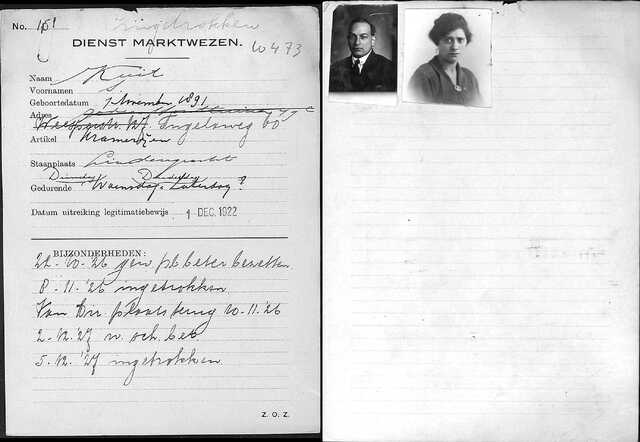 No. 161 Ingetrokken
DIENST MARKTWEZEN. W 473
Naam Kuit
Voornamen S
Geboortedatum 7 November 1891
Adres
Weesperstr. 127 Engelsweg 60
Artikel Kramerijen
Staanplaats Lindengracht
Dinsdag Donderdag
Gedurende Woensdag. Zaterdag?
Datum uitreiking legitimatiebewijs 1 DEC. 1922
BIJZONDERHEDEN:
21-10-26 gew. pl. beter bezetten
8-11-'26 ingetrokken
Van Dir. plaats terug 10-11-'26
2-12-'27 w. och. bez.
5-12-'27 ingetrokken
Z. O. Z.